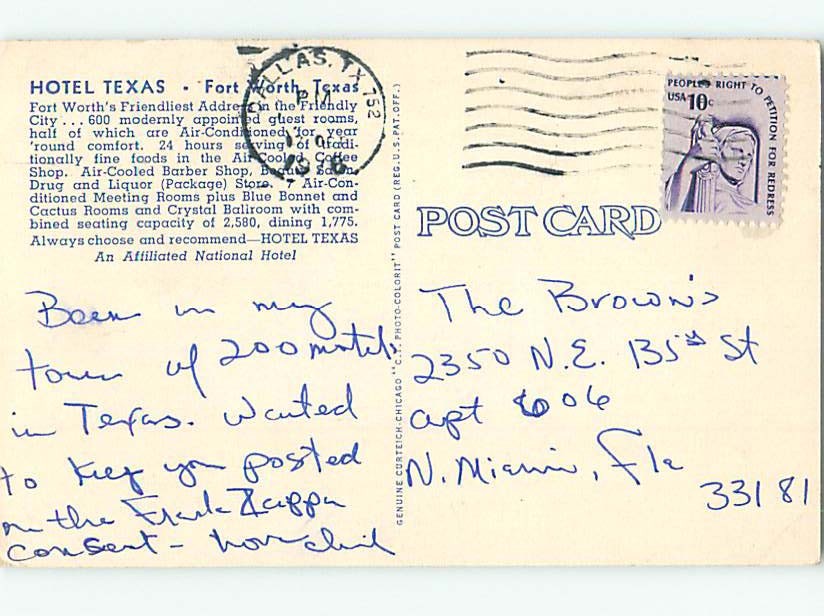 HOTEL TEXAS • Fort Worth, Texas
Fort Worth's Friendliest Address in the Friendly
City . . . 600 modernly appointed guest rooms,
half of which are Air-Conditioned for year
'round comfort. 24 hours serving of tradi-
tionally fine foods in the Air-Cooled Coffee
Shop. Air-Cooled Barber Shop, Beauty Salon,
Drug and Liquor (Package) Store. 7 Air-Con-
ditioned Meeting Rooms plus Blue Bonnet and
Cactus Rooms and Crystal Ballroom with com-
bined seating capacity of 2,580, dining 1,775.
Always choose and recommend—HOTEL TEXAS
An Affiliated National Hotel
Been on my
tour of 200 motels
in Texas. Wanted
to keep you posted
on the Frank Zappa
consert -
GENUINE CURTEICH-CHICAGO "C.T. PHOTO-COLORIT" POST CARD (REG. U.S. PAT. OFF.)
DALLAS, TX 752
PM
PEOPLE'S RIGHT TO PETITION FOR REDRESS
USA 10c
POST CARD
The Brown's
2350 N.E. 135th St
apt 606
N. Miami, Fla
33181